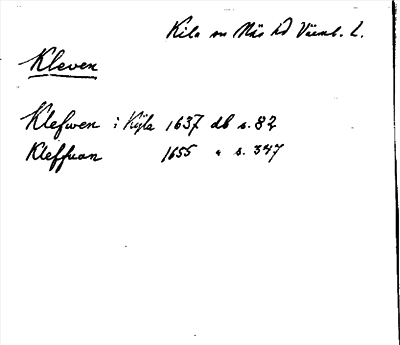 Kila sn Näs hd Värml. l.
Kleven
Klefwen i Kijla 1637 db s. 82
Kleffuan 1655 " s. 347